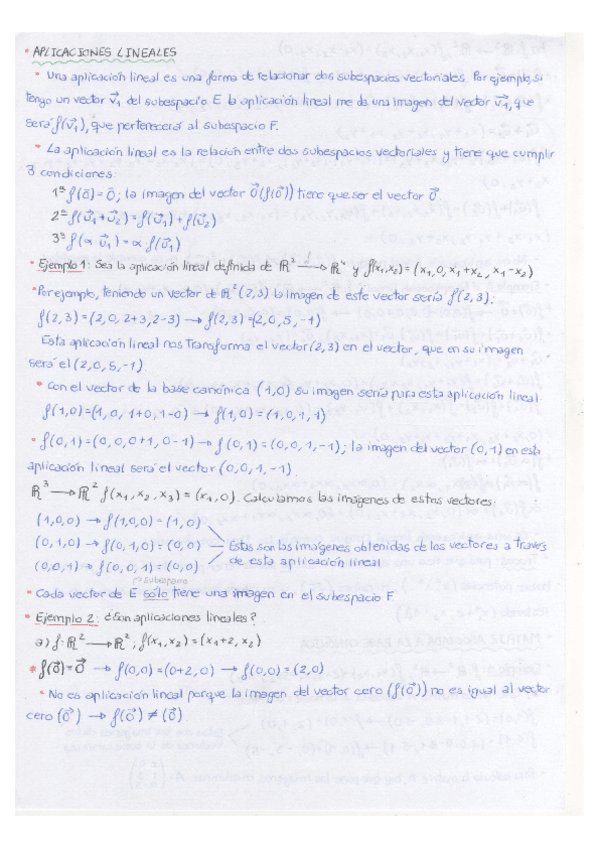 • APLICACIONES LINEALES
• Una aplicación lineal es una forma de relacionar dos subespacios vectoriales. Por ejemplo, si
tengo un vector v⃗₁ del subespacio E la aplicación lineal me da una imagen del vector v⃗₁, que
será f(v⃗₁), que pertenecerá al subespacio F.
• La aplicación lineal es la relación entre dos subespacios vectoriales y tiene que cumplir
3 condiciones:
1ª f(o⃗) = o⃗; la imagen del vector O⃗ (f(O⃗)) tiene que ser el vector O⃗.
2ª f(u⃗₁+u⃗₂) = f(u⃗₁) + f(u⃗₂)
3ª f(∝ u⃗₁) = ∝ f(u⃗₁)
• Ejemplo 1: Sea la aplicación lineal definida de ℝ² →f ℝ⁴ y f(x₁,x₂) = (x₁, 0, x₁+x₂, x₁-x₂)
• Por ejemplo, teniendo un vector de ℝ² (2,3) la imagen de este vector sería f(2,3):
f(2,3) = (2, 0, 2+3, 2-3) → f(2,3) = (2, 0, 5, -1)
Esta aplicación lineal nos transforma el vector (2,3) en el vector, que en su imagen
será el (2,0,5,-1).
• Con el vector de la base canónica (1,0) su imagen sería para esta aplicación lineal:
f(1,0) = (1, 0, 1+0, 1-0) → f(1,0) = (1,0,1,1)
• f(0,1) = (0,0,0+1, 0-1) → f(0,1) = (0,0,1,-1); la imagen del vector (0,1) en esta
aplicación lineal será el vector (0,0,1,-1).
ℝ³ → ℝ² f(x₁, x₂, x₃) = (x₁, 0). Calculamos las imágenes de estos vectores:
(1,0,0) → f(1,0,0) = (1,0)
(0,1,0) → f(0,1,0) = (0,0) Estas son las imágenes obtenidas de los vectores a través
de esta aplicación lineal
(0,0,1) → f(0,0,1) = (0,0)
→ Subespacio
• Cada vector de E sólo tiene una imagen en el subespacio F.
• Ejemplo 2: ¿Son aplicaciones lineales?
a) f: ℝ² → ℝ²; f(x₁,x₂) = (x₁+2, x₂)
* f(O⃗) = O⃗ → f(0,0) = (0+2, 0) → f(0,0) = (2,0)
• No es aplicación lineal porque la imagen del vector cero (f(O⃗)) no es igual al vector
cero (O⃗) → f(O⃗) ≠ (O⃗)